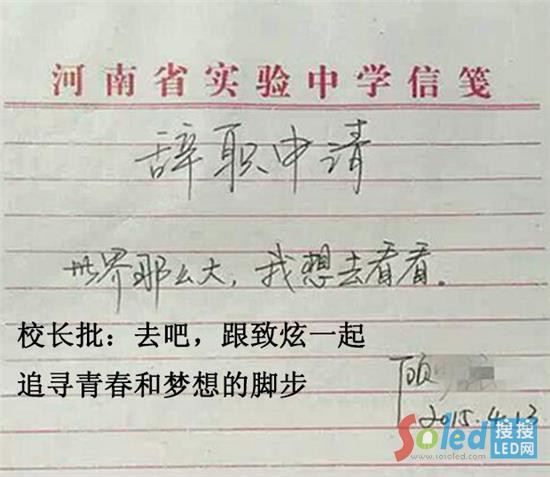 河南省实验中学信笺
辞职申请
世界那么大，我想去看看。
校长批：去吧，跟致炫一起
追寻青春和梦想的脚步
顾
2015.4.13
Soled 搜搜
LED网
www.sosoled.com